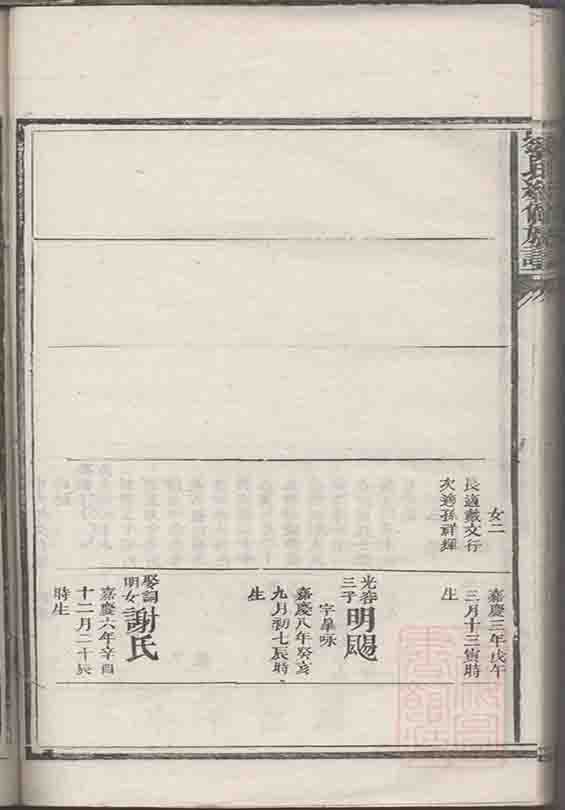 氏總修族譜
女二
長適戴文行
次適孫祥輝
嘉慶三年戊午
三月十三寅時
生
光
三子
明颺
字皐咏
嘉慶八年癸亥
九月初七辰時
生
娶詞
明女
謝氏
嘉慶六年辛酉
十二月二十辰
時生